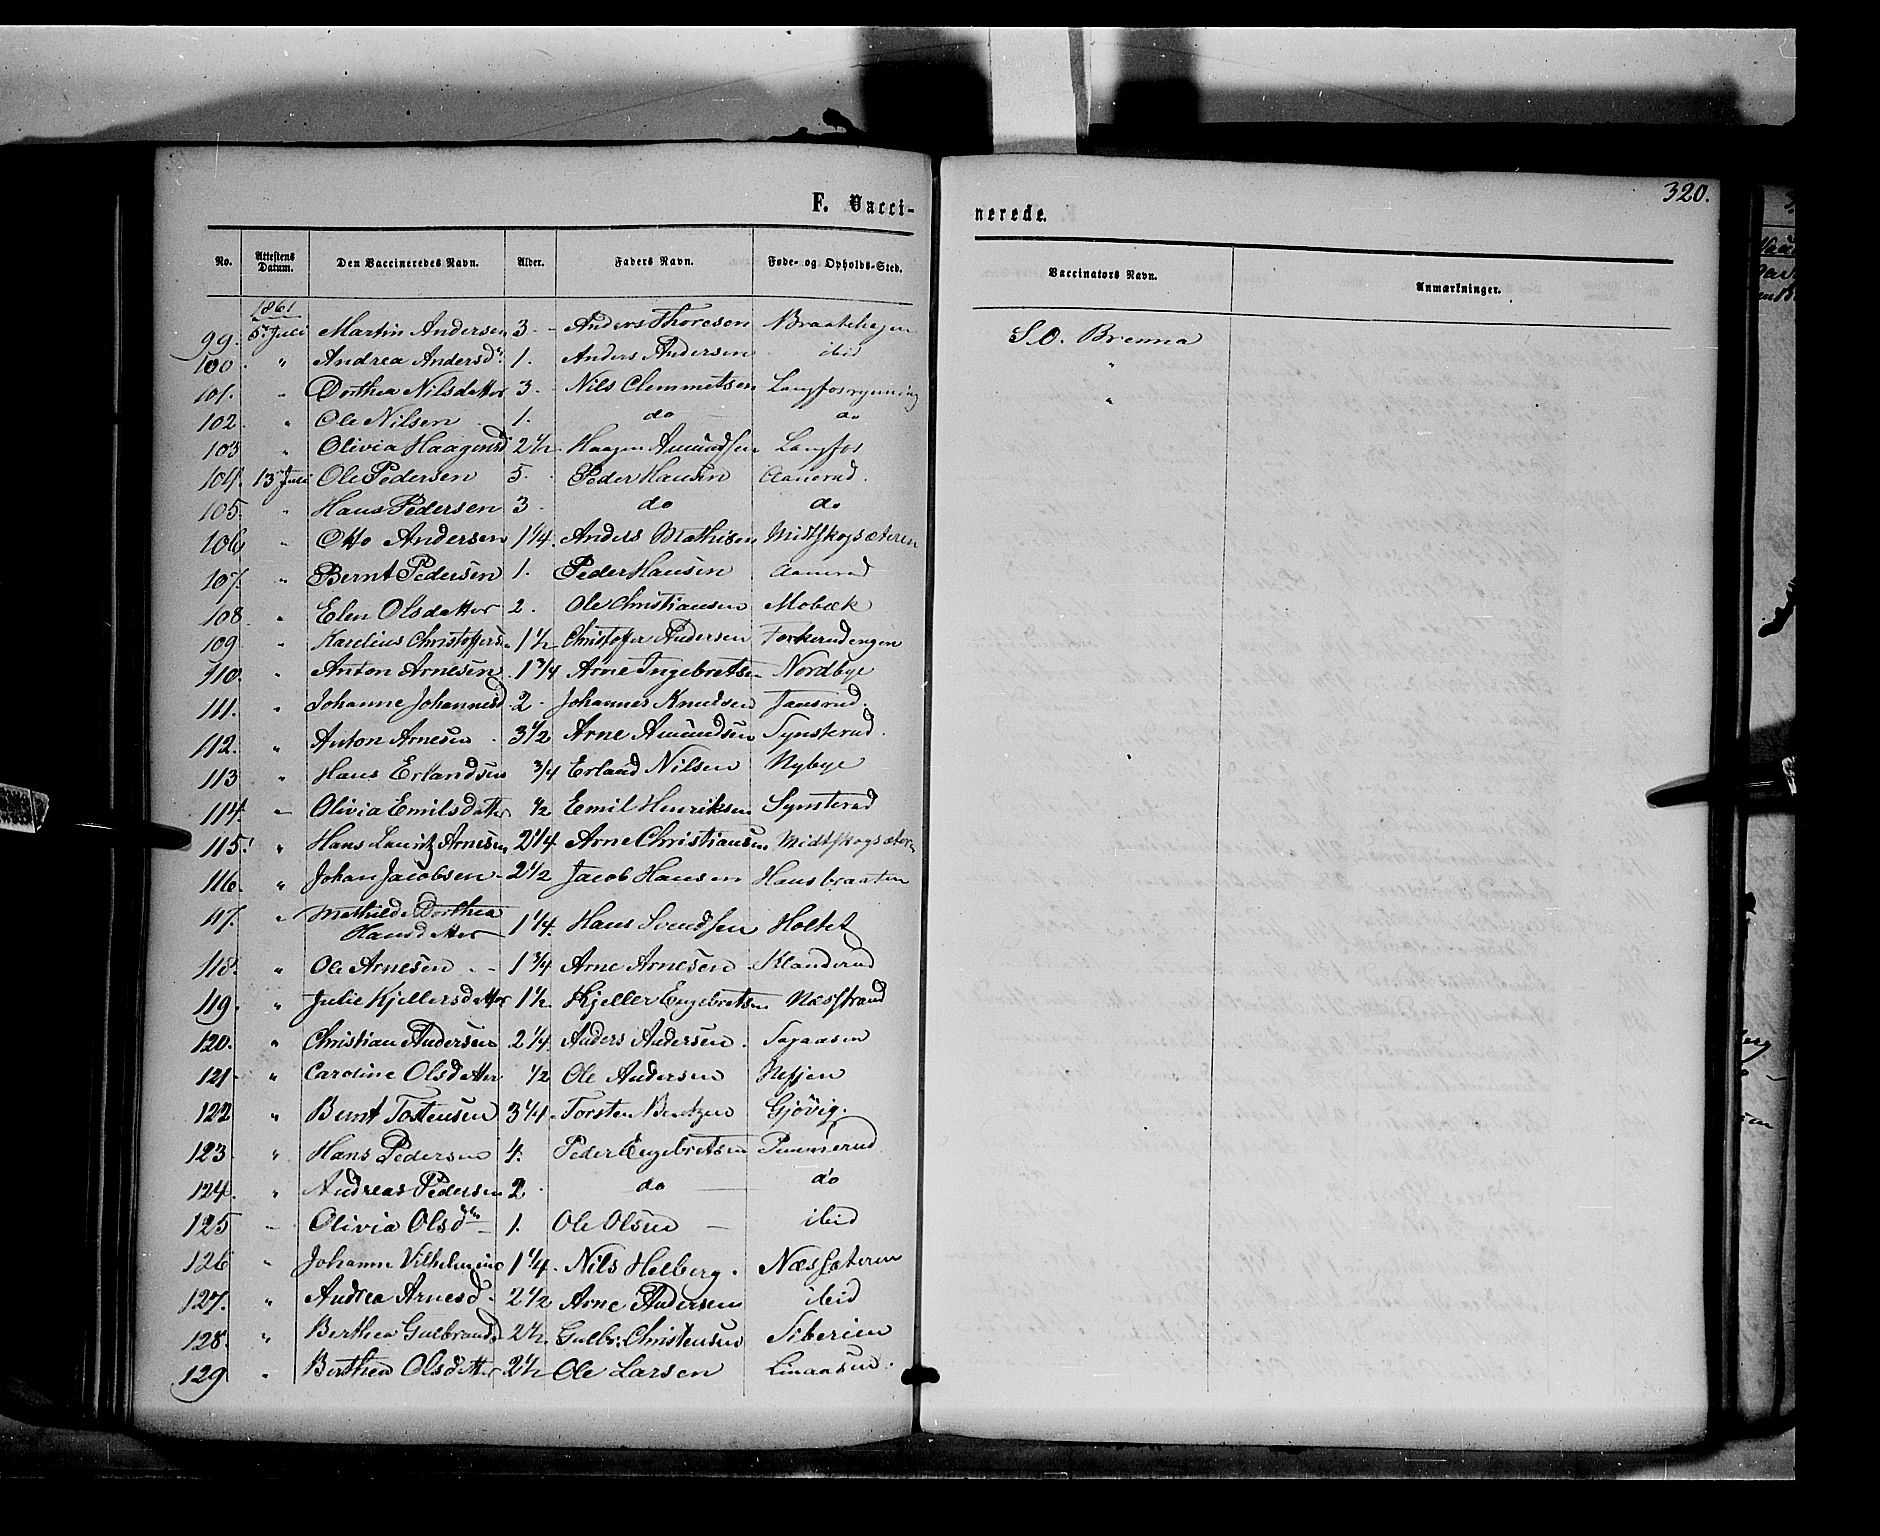 320.
F. Vacci- nerede.
No. Attestens Datum. Den Vaccineredes Navn. Alder. Faders Navn. Føde- og Opholds-Sted. Vaccinators Navn. Anmærkninger.
1861
99. 5 Juli Martin Andersen 3. - Anders Thoresen Braatehagen S.O. Brenna
100. " Andrea Andersd. 1. Anders Andersen ibid "
101. " Dorthea Nilsdatter 3. Nils Clemmetsen Langfosrynning "
102. " Ole Nilsen 1. do do
103 " Olivia Haagensd 2 1/2 Haagen Amundsen Langfos
104. 13 Juli Ole Pedersen 5. Peder Hansen Aanerud.
105. " Hans Pedersen 3 do do
106 " Otto Andersen 1 1/4. Anders Mathisen Midtskogsæteren
107. " Bernt Pedersen 1. Peder Hansen Aanerud
108 " Elen Olsdatter 2. Ole Christiansen Mobæk
109 " Karelius Christoffers. 1 1/2 Christoffer Andersen Forkerudengen
110. " Anton Arnesen 1 3/4 Arne Ingebretsen Nordbye
111. " Johanne Johannesd 2 - Johannes Knudsen Jansrud.
112. " Anton Arnesen 3 1/2 Arne Amundsen Synsterud.
113 " Hans Erlandsen 3/4 Erland Nilsen Nybye
114. " Olivia Emilsdatter 1/2 Emil Henriksen Synsterud
115. " Hans Lauritz Arnesen 2 1/4 Arne Christiansen Midtskogsæteren
116. " Johan Jacobsen - 2 1/2 Jacob Hansen Hansbraaten
117. " Mathilde Dorthea
Hansdatter 1 1/4. Hans Svendsen Holtet
118. " Ole Arnesen - 1 3/4 Arne Arnesen Klanderud
119. " Julie Kjellersdatter 1 1/2. Kjeller Engebretsen Næsstrand
120. " Christian Andersen 2 1/4. Anders Andersen.
121 " Caroline Olsdatter 1/2 Ole Andersen
122 " Bernt Tostensen 3 1/4. Torsten Berntzen Gjövig.
123. " Hans Pedersen 4. Peder Engebretsen Pemmerud
124. " Andreas Pedersen 2. do do
125 - Olivia Olsdtr 1. Ole Olsen - ibid
126 " Johanne Vilhelmine 1 1/4. Nils Helberg. Næssæteren
127. " Andrea Arnesd. 2 1/2 Arne Andersen ibid
128. " Berthea Gulbrandsd 2 1/2. Gulbr. Christensen Siberien
129 " Berthea Olsdatter 2 1/2 Ole Larsen Linaasen.